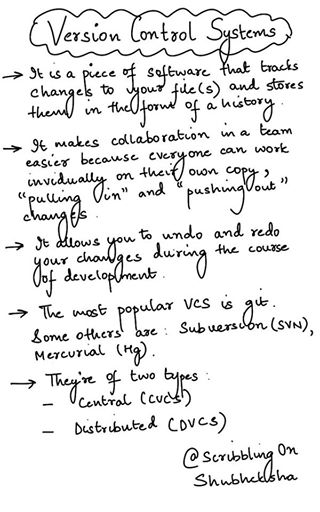 Version Control Systems
→ It is a piece of software that tracks
changes to your file(s) and stores
them in the form of a history.
→ It makes collaboration in a team
easier because everyone can work
invidually on their own copy,
"pulling in" and "pushing out"
changes.
→ It allows you to undo and redo
your changes during the course
of development.
→ The most popular VCS is git.
Some others are: Subversion (SVN),
Mercurial (Hg).
→ They're of two types:
- Central (CVCS)
- Distributed (DVCS)
@Scribbling On
Shubheksha